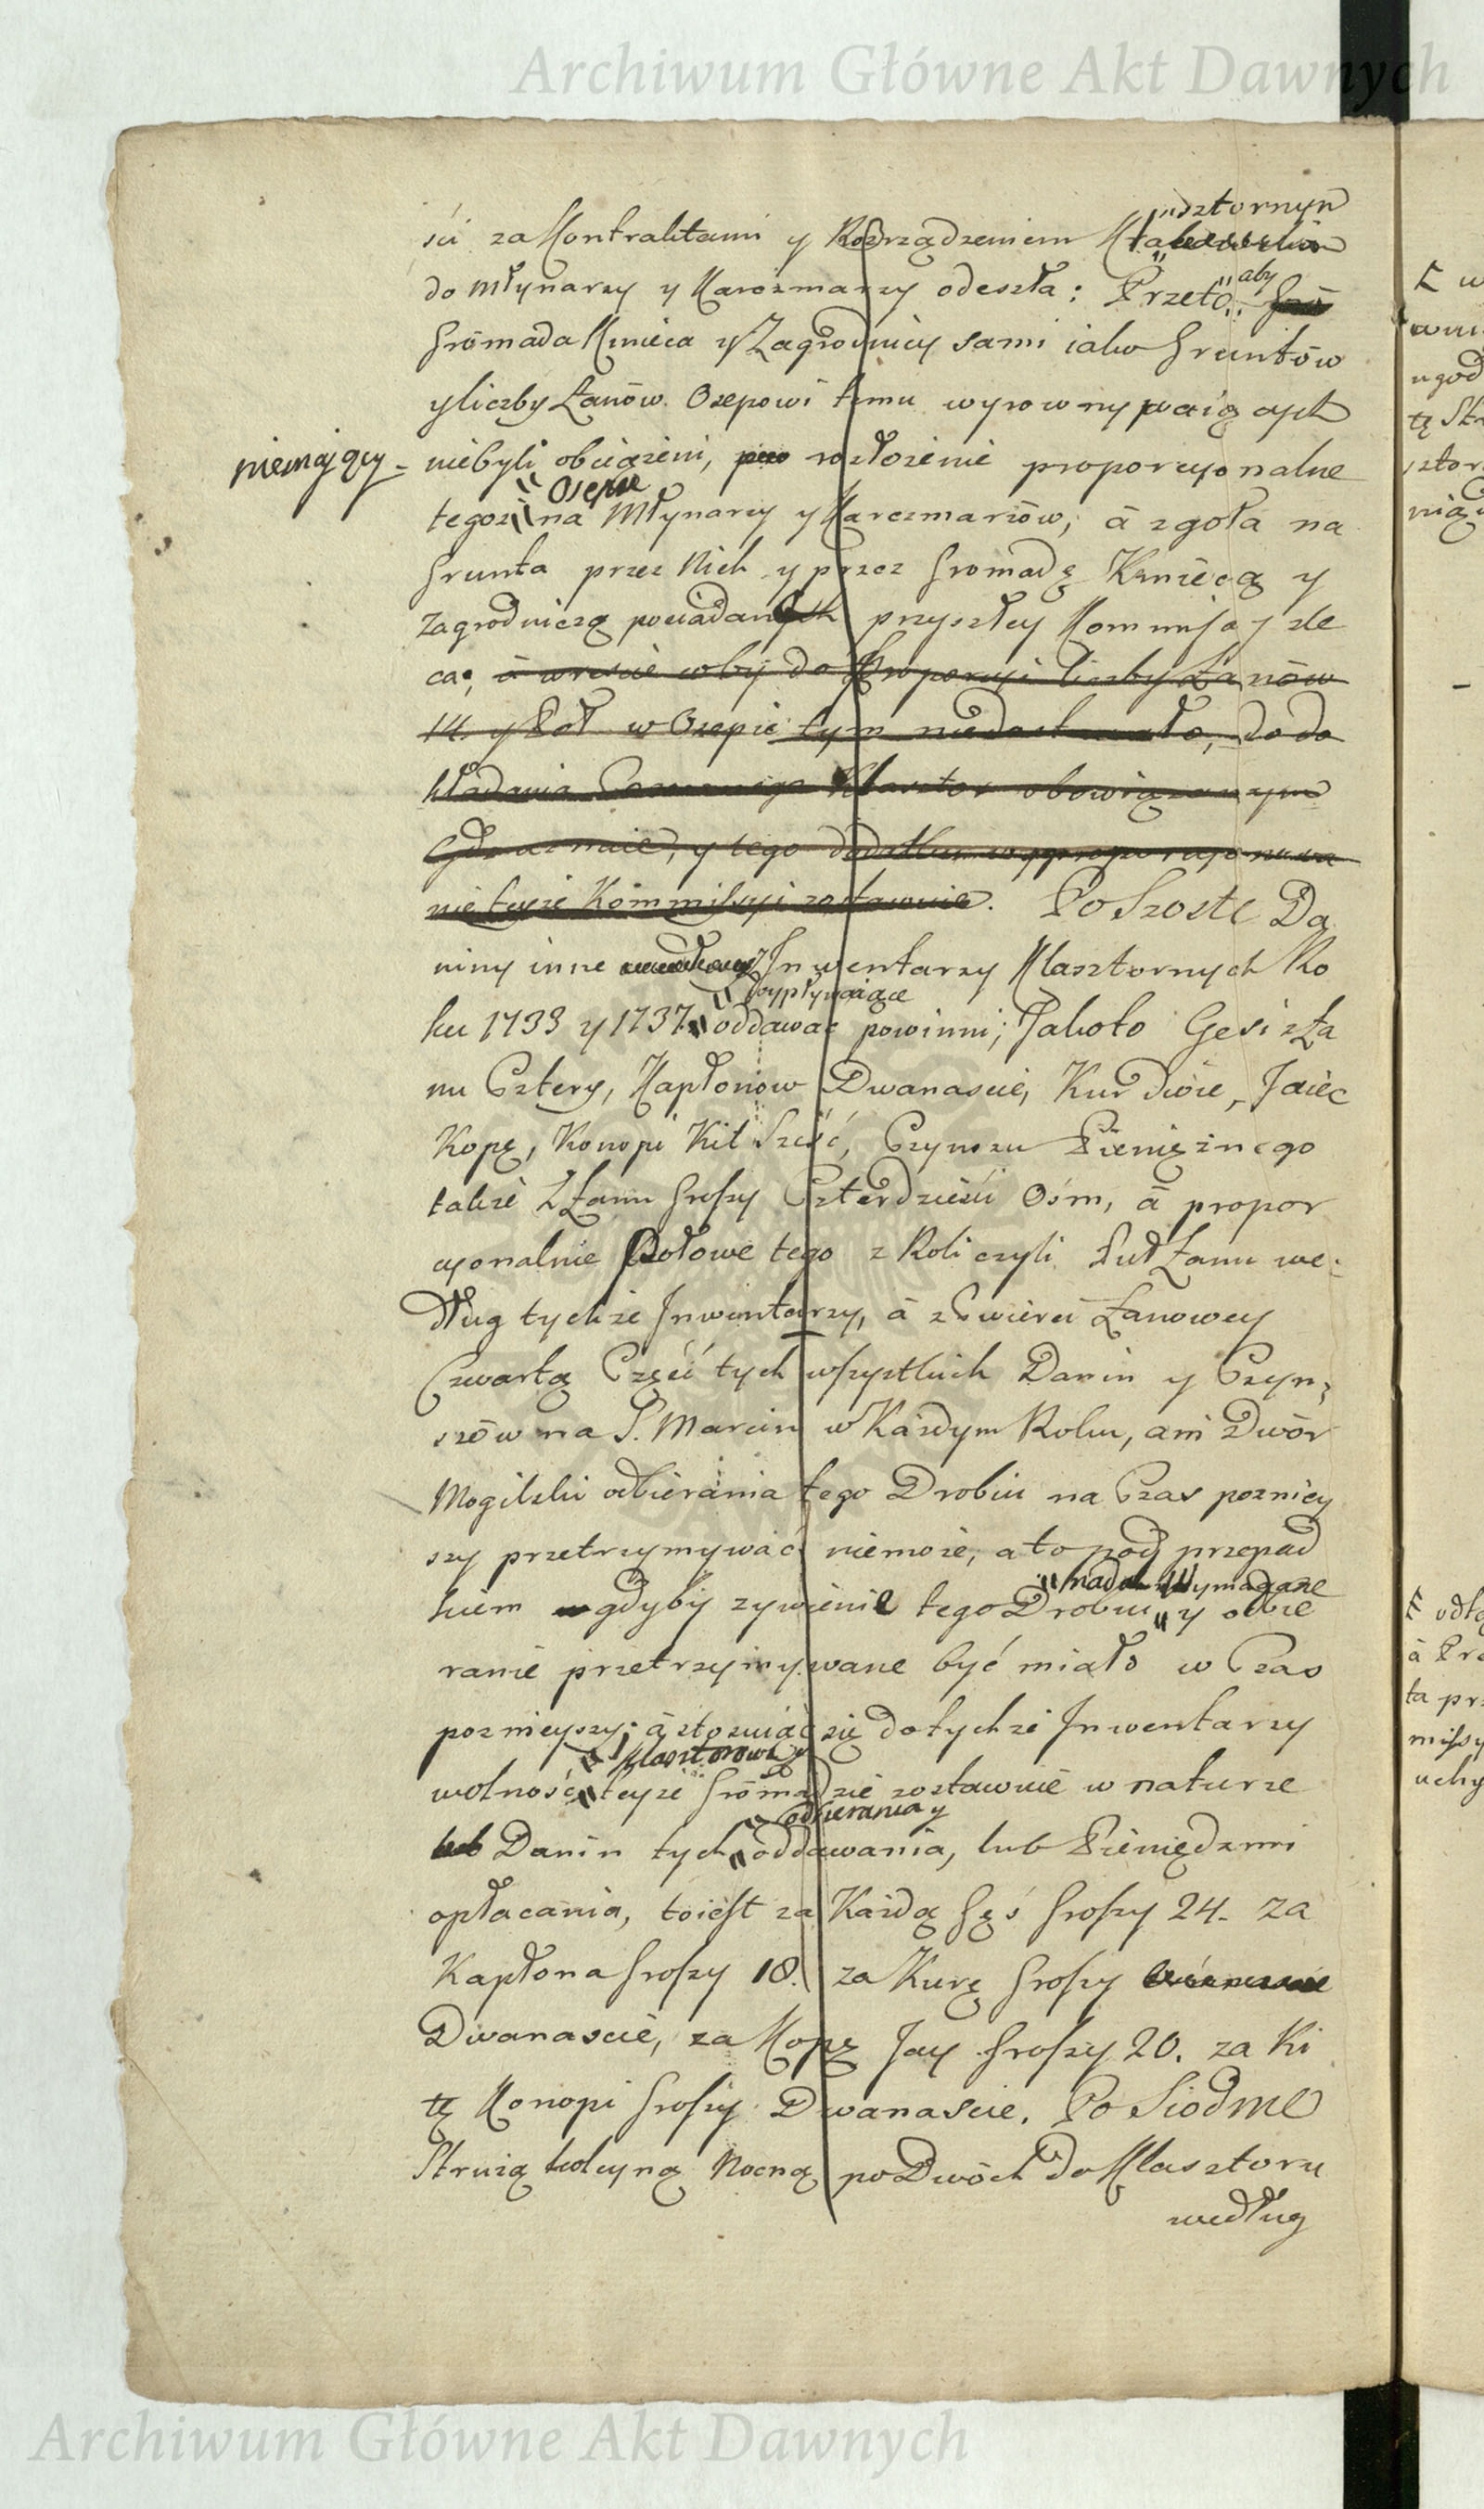 Archiwum Główne Akt Dawnych
ści za Kontraktami y Rozrządzeniem Klasztornym
do Młynarzy y Karczmarzy odeszła: Przeto aby
Gromada Kmieca y Zagrodnicy sami iako Gruntów
y liczby Łanów Osepowi temu wyrownywaiących
niemaiący
niebyli obciążeni, rozłożenie proporcyonalne
tegoż Osepu na Młynarzy y Karczmarzów, à zgoła na
Grunta przez Nich y przez Gromadę Kmiecą y
Zagrodniczą posiadane przyszłey Kommissyi zle
ca; à wreście coby do Proporcyi liczby Łanów
14. y Poł w Osepie tym niedostawało, do do
kładania Klasztor obowiązanym
y tego dodatku wyproporcyonowa
nie teyże Kommissyi zostawuie. Po Szoste Da
niny inne z Inwentarzy Klasztornych Ro
ku 1733 y 1737 wypływaiące oddawać powinni; Jakoto Gęsi z Ła
nu Cztery, Kapłonow Dwanaście, Kur Dwie, Jaiec
Kopę, Konopi Kit Sześć, Czynszu Pieniężnego
także z Łanu Groszy Czterdzieści Ośm, à propor
cyonalnie Połowe tego z Roli czyli Puł Łanu we
dług tychże Inwentarzy, à z Cwierci Łanowey
Czwartą Część tych wszystkich Danin y Czyn
szów na S. Marcin w Każdym Roku, ani Dwór
Mogilski odbierania tego Drobiu na Czas pozniey
szy przetrzymywać niemoże, a to pod przepad
kiem gdyby zywienie tego Drobiu nadal wymagane y odbie
ranie przetrzymywane być miało w Czas
poznieyszy; à stosuiąc się do tychże Inwentarzy
wolność Klasztorowi y teyże Gromadzie zostawuie w naturze
Danin tych odbierania y oddawania, lub Pieniędzmi
opłacania, toiest za Każdą Gęś Groszy 24. za
Kapłona Groszy 18. za Kurę Groszy
Dwanaście, za Kopę Jay Groszy 20. za Ki
tę Konopi Groszy Dwanaście. Po Siodme
Strużą koleyną Nocną po Dwóch do Klasztoru
według
Archiwum Główne Akt Dawnych